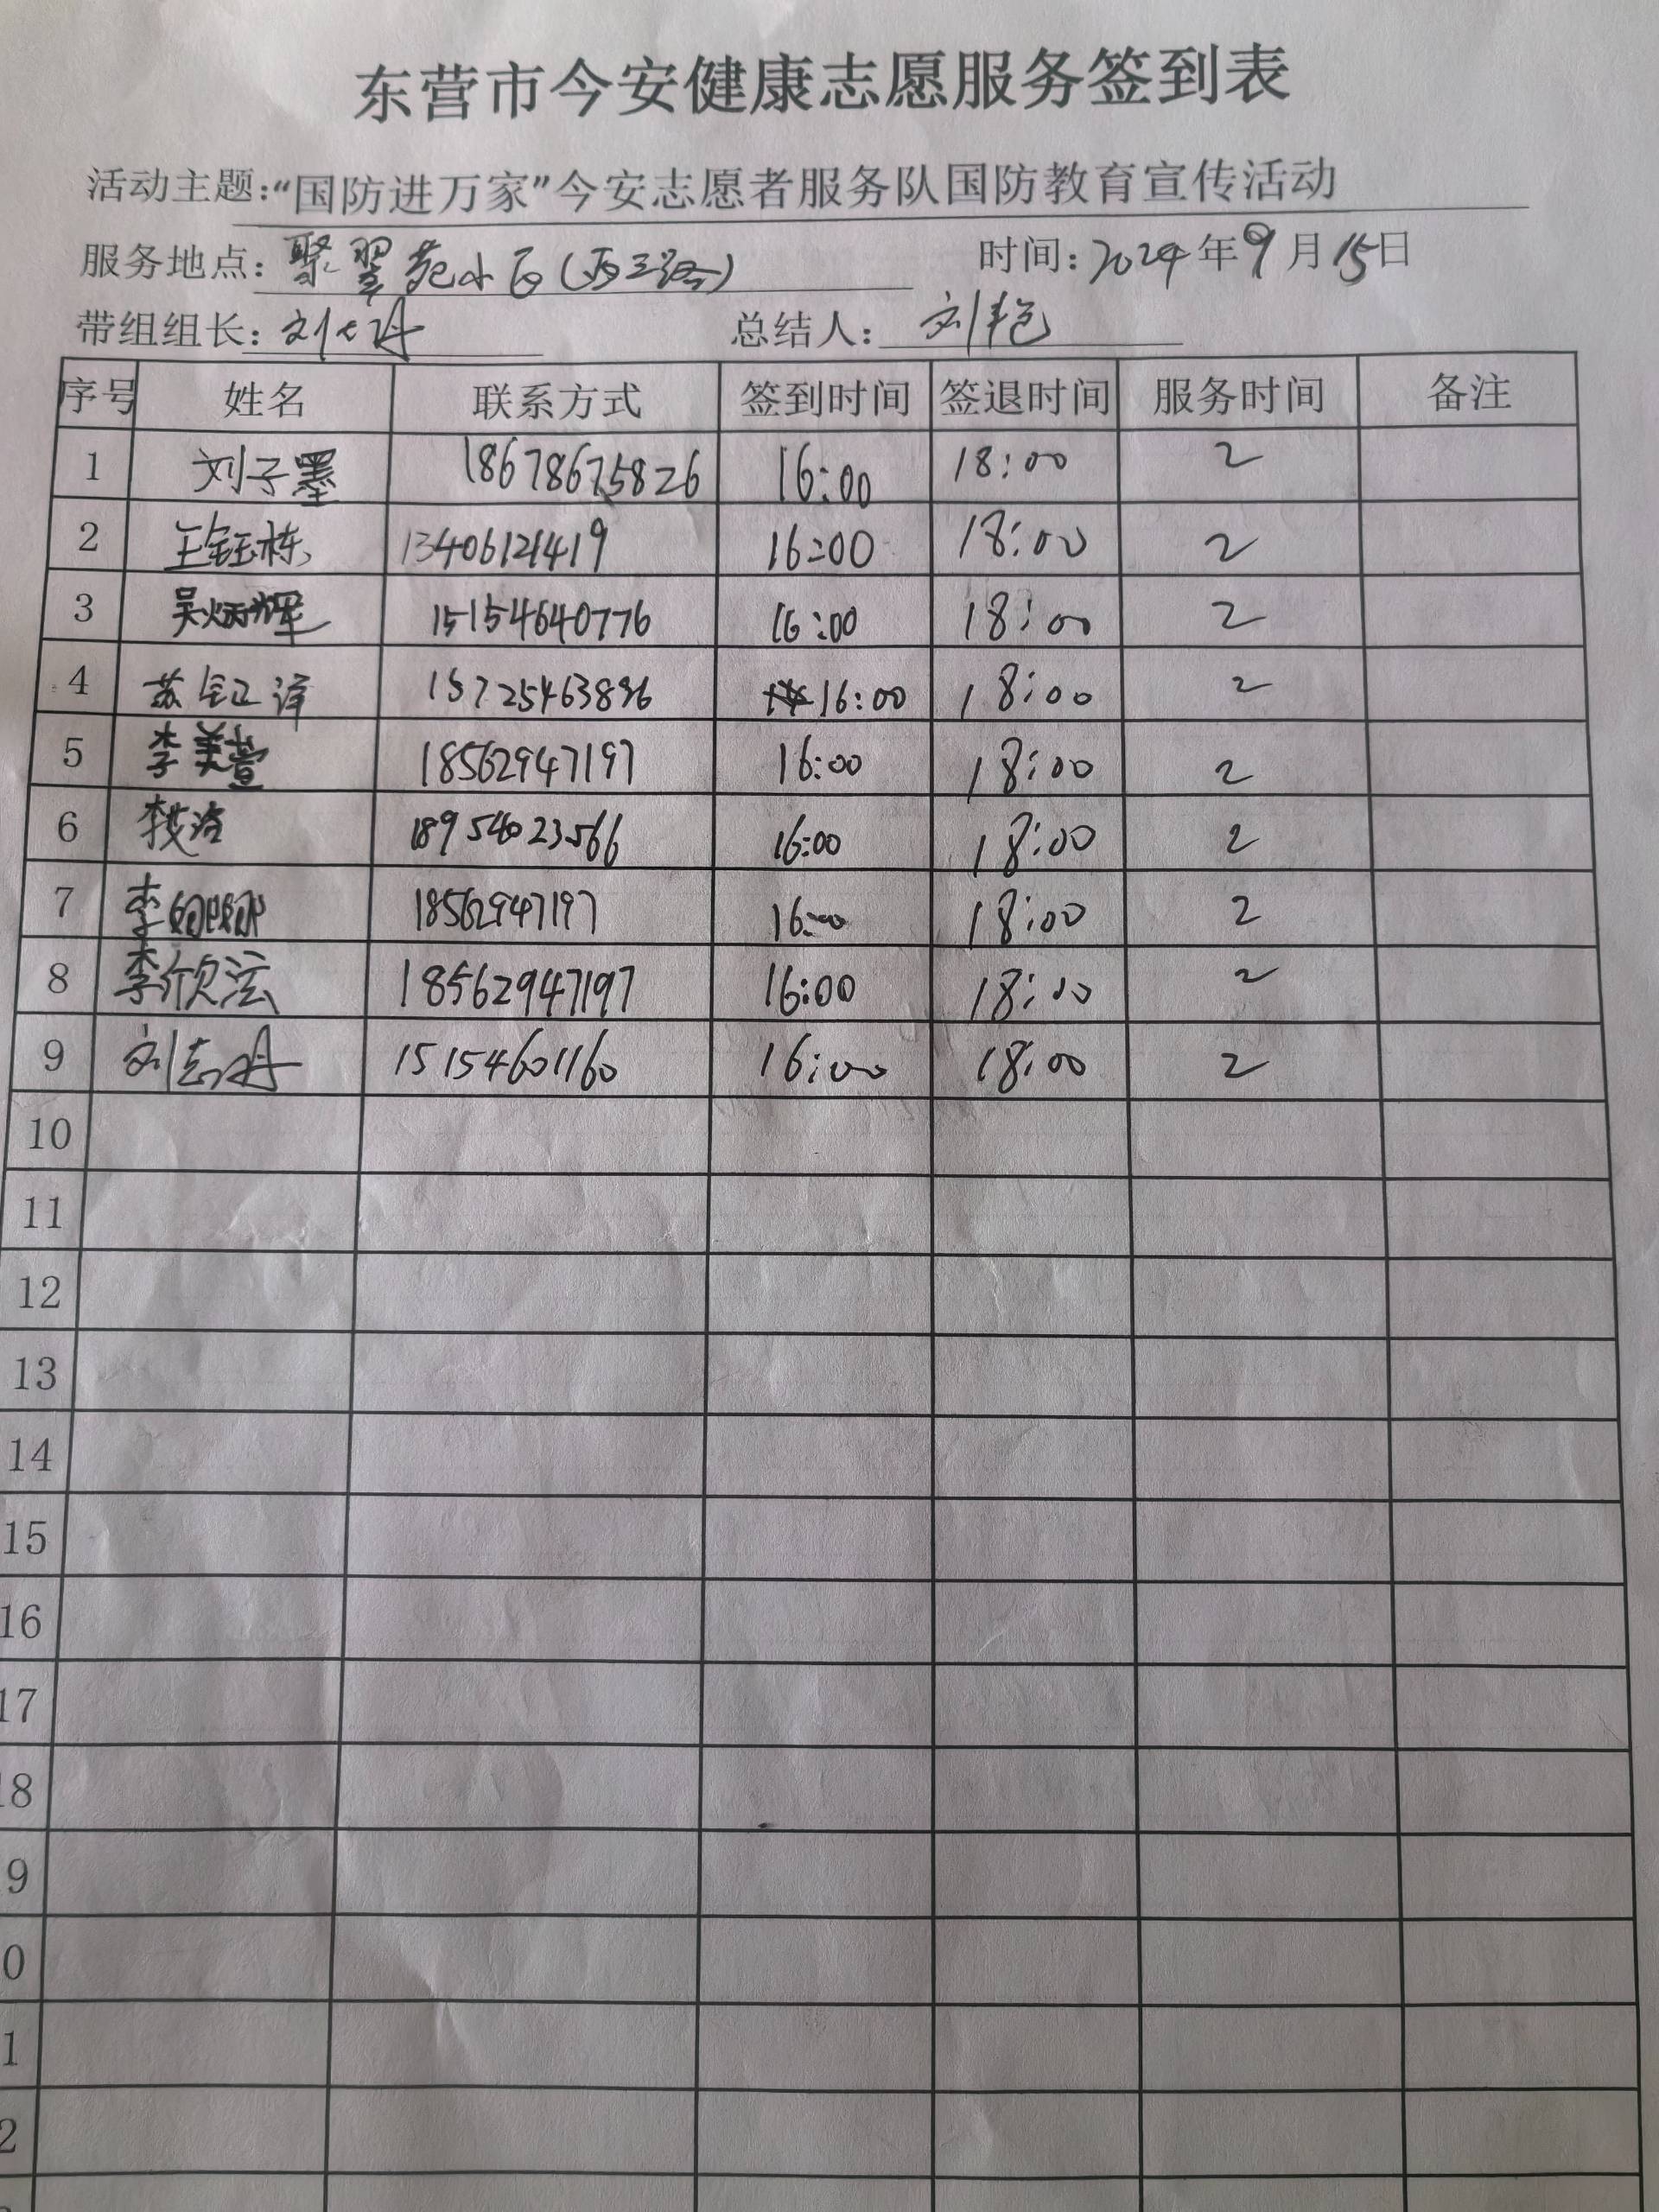 东营市今安健康志愿服务签到表
活动主题:“国防进万家”今安志愿者服务队国防教育宣传活动
服务地点: 聚翠苑小区(西三路) 时间: 2024年9月15日
带组组长: 刘志丹 总结人: 刘艳
序号 姓名 联系方式 签到时间 签退时间 服务时间 备注
1 刘子墨 18678675826 16:00 18:00 2
2 王钰栋 13406121419 16:00 18:00 2
3 吴炳辉 15154640776 16:00 18:00 2
4 苏钰译 15725463896 16:00 18:00 2
5 李美萱 18562947197 16:00 18:00 2
6 李 18954023566 16:00 18:00 2
7 李 18562947197 16:00 18:00 2
8 李欣法 18562947197 16:00 18:00 2
9 刘志丹 15154601160 16:00 18:00 2
10
11
12
13
14
15
16
17
18
9
0
1
2